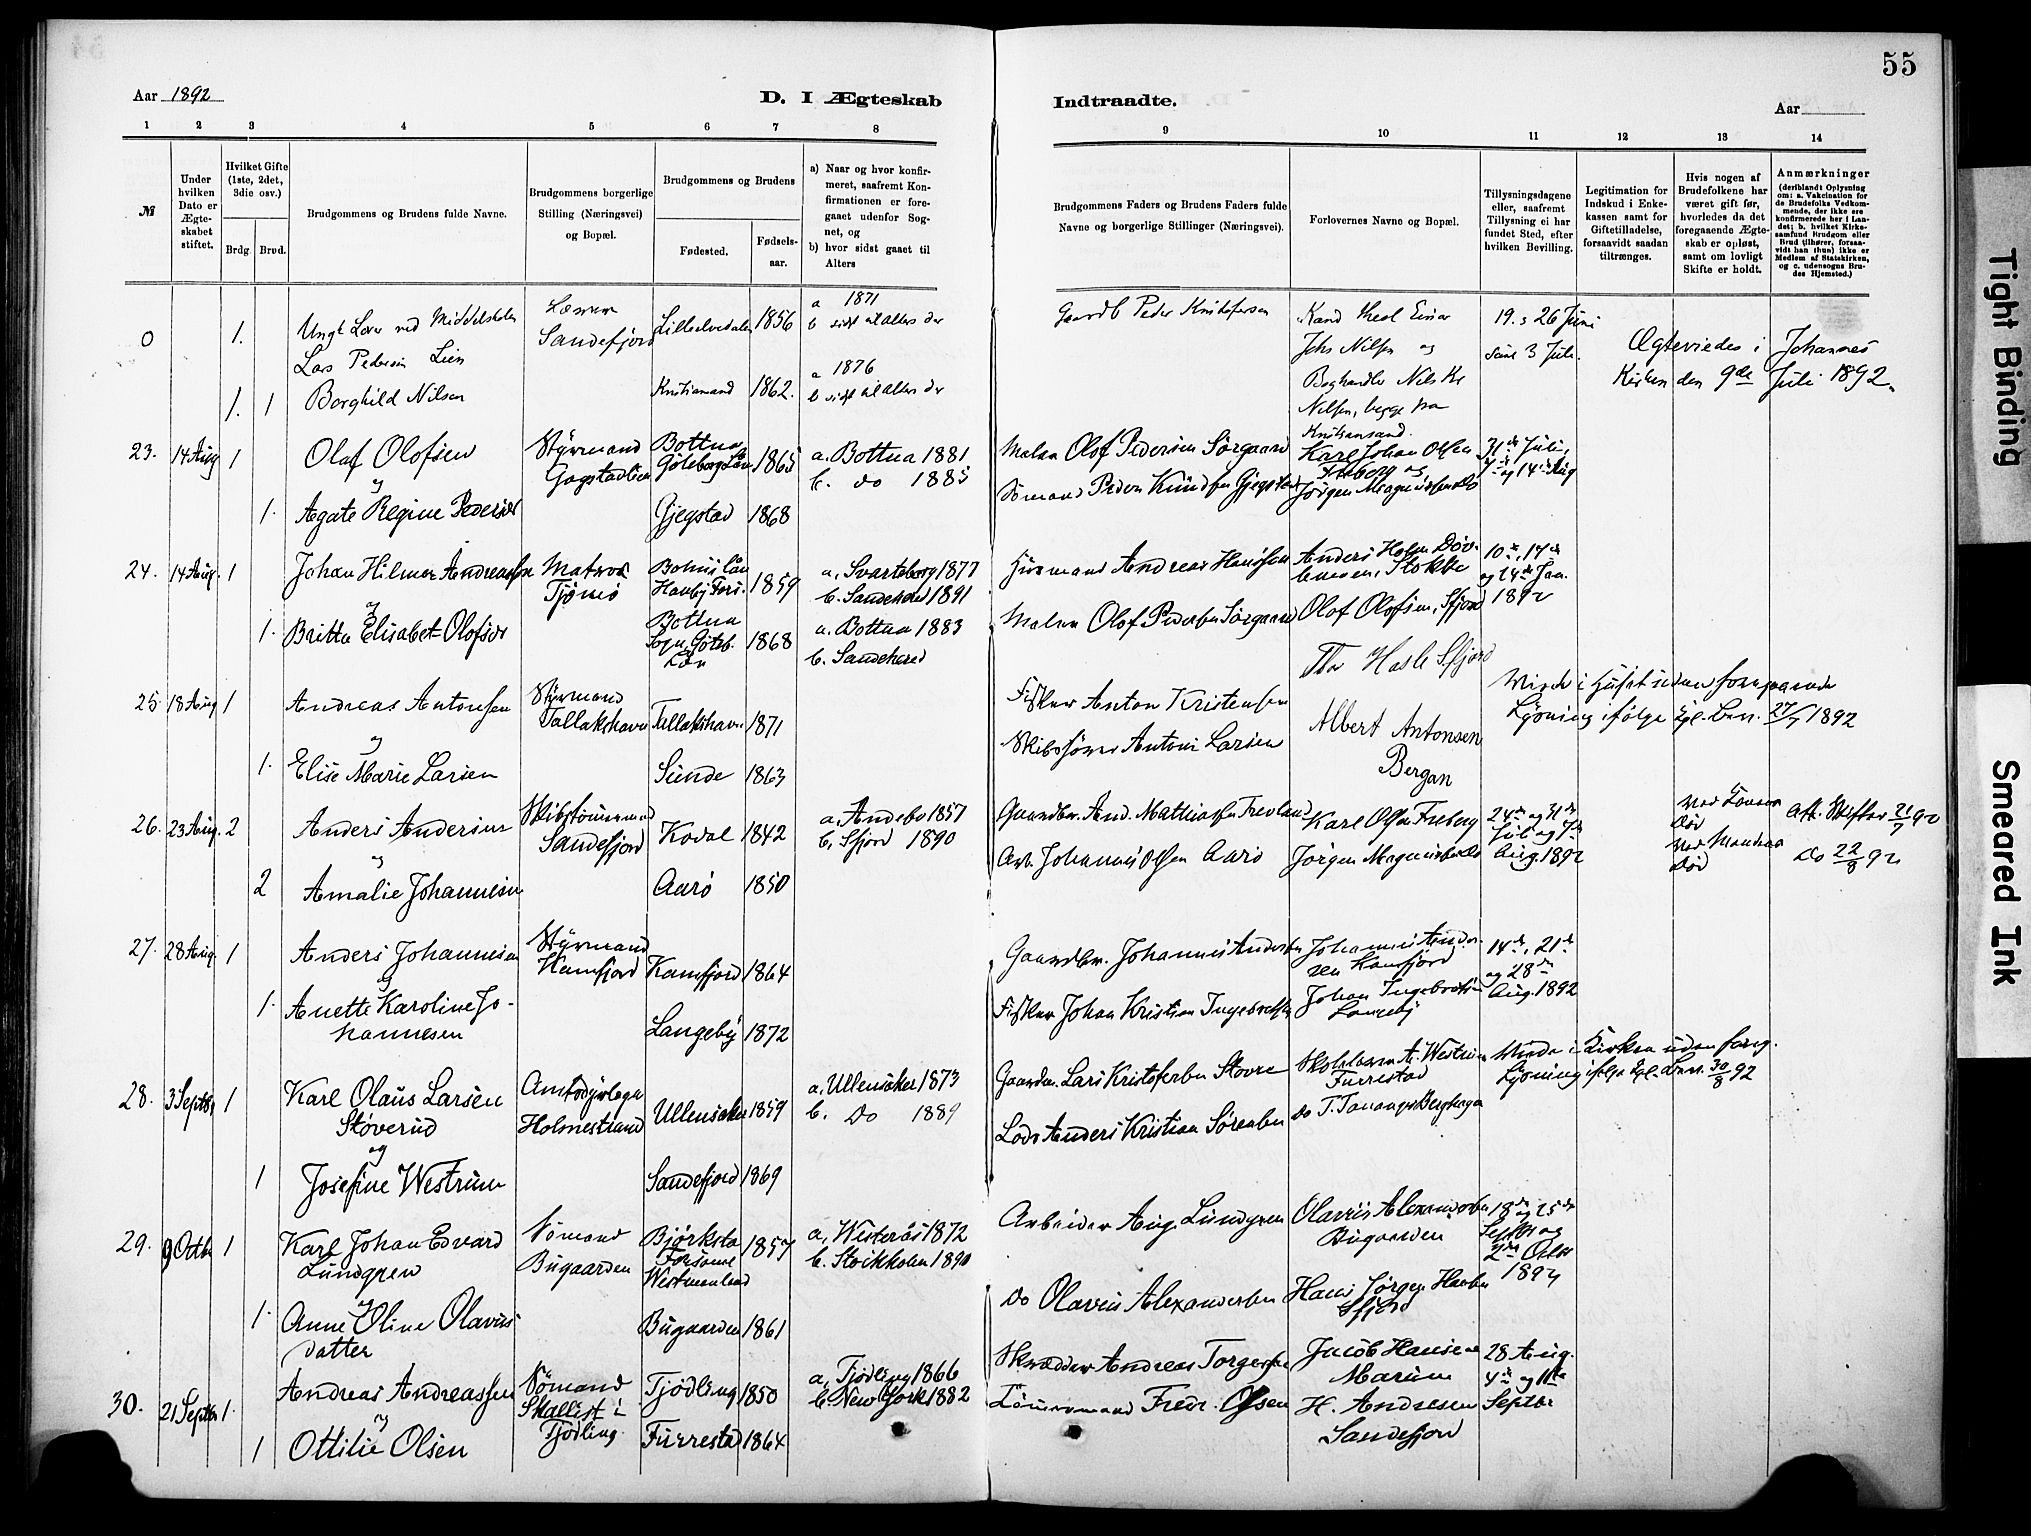 55
Aar 1892
D. I Ægteskab
Indtraadte.
Aar
1 2 3 4 5 6 7 8 9 10 11 12 13 14
№
Under
hvilken
Dato er
Ægte-
skabet
stiftet.
Hvilket Gifte
(1ste, 2det,
3die osv.)
Brdg. Brud.
Brudgommens og Brudens fulde Navne.
Brudgommens borgerlige
Stilling (Næringsvei)
og Bopæl.
Brudgommens og Brudens
Fødested.
Fødsels-
aar.
a) Naar og hvor konfir-
meret, saafremt Kon-
firmationen er fore-
gaaet udenfor Sog-
net, og
b) hvor sidst gaaet til
Alters
Brudgommens Faders og Brudens Faders fulde
Navne og borgerlige Stillinger (Næringsvei).
Forlovernes Navne og Bopæl.
Tillysningsdagene
eller, saafremt
Tillysning ei har
fundet Sted, efter
hvilken Bevilling.
Legitimation for
Indskud i Enke-
kassen samt for
Giftetilladelse,
forsaavidt saadan
tiltrænges.
Hvis nogen af
Brudefolkene har
været gift før,
hvorledes da det
foregaaende Ægte-
skab er opløst,
samt om lovligt
Skifte er holdt.
Anmærkninger
(deriblandt Oplysning
om: a. Vakcination for
de Brudefolks Vedkom-
mende, der ikke ere
konfirmerede her i Lan-
det; b. hvilket Kirke-
samfund Brudgom eller
Brud tilhører, forsaa-
vidt han (hun) ikke er
Medlem af Statskirken,
og c. udensogns Bru-
des Hjemsted.)
0 1. Ungk Lærer ved Middelskolen
Lars Pedersen Lien
Sandefjord
Lilleelvedalen 1856
a 1871
b sidst til alters der
Gaardb Peder Kristofersen
Kand theol Einar
Johs Nilsen og
Boghandler Nils Kr
Nilsen, begge fra
Kristiansand.
19. & 26 Juni
samt 3 Juli.
Ægteviedes i Johannes
Kirken den 9de Juli 1892
1. 1 Borghild Nilsen
Kristiansand 1862.
a 1876
b sidst til alters der
23. 14 Aug 1 Olaf Olofsen
og
Styrmand
Gogstadlien
Bottna
Göteborgs Län 1865
a. Bottna 1881
b. do 1885
Maler Olof Pedersen Sørgaard
Sømand Peder Knudsen Gjegstad
Karl Johan Olsen
Freberg og
Jørgen Magnussen do
31te Juli,
7de og 14de Aug
1. Agate Regine Pedersen
Gjegstad 1868
24. 14 Aug. 1 Johan Hilmer Andreassen
og
Matros
Tjømø
Bohus Län
Hanby Fors. 1859
a, Svarteborg 1877
b. Sandeherred 1891
Husmand Andreas Hansson
Maler Olof Pedersen Sørgaard
Anders Holm Døv-
Stokke
Olof Olofsen, Sfjord
10de, 17de
og 24de Jan.
1892
1. Britta Elisabet Olofsen
Bottna
Sogn, Göteb.
Län 1868
a. Bottna 1883
b. Sandeherred
25 18 Aug 1 Andreas Antonsen
og
Styrmand
Tallakshavn
Tallakshavn 1871
Fisker Anton Kristensen
Skibsfører Anton Larsen
Thv Hasle Sfjord
Albert Antonsen
Bergan
Viede i Huset uden foregaaende
Lysning ifølge kgl. Bev. 27/7 1892
1. Elise Marie Larsen
Sunde 1863
26. 23 Aug. 2 Anders Andersen
og
Skibstømmermand
Sandefjord
Kodal 1842
a, Andebo 1857
b. Sfjord 1890
Gaardbr. And. Mathiassen Trevland
Arb. Johannes Olsen Aarø
Karl Olsen Freberg
Jørgen Magnussen do
24de og 31te
Juli og 7de
Aug. 1892
ved Konens
Død
ved Mandens
Død
Att. Skifter 21/7 92
do 22/8 92
2 Amalie Johannesen
Aarø 1850
27. 28 Aug. 1 Anders Johannesen
og
Styrmand
Kamfjord
Kamfjord 1864
Gaardbr. Johannes Andersen
Fisker Johan Kristian Ingebretsen
Johannes Ander-
sen Kamfjord
Johan Ingebretsen
Langeby
14de, 21de
og 28de
Aug. 1892
1. Anette Karoline Jo-
hannesen
Langeby 1872
28. 3 Septbr 1 Karl Olaus Larsen
Støverud
og
Amtsdyrlæge
Holmestrand
Ullensaker 1859
a, Ullensaker 1873
b. do 1889
Gaardbr. Lars Kristofersen Stovre
Lods Anders Kristian Sørensen
Skolelærer A. Westrum
Furrestad
do T. Tanangs Berghagen
Viede i Kirken uden foreg.
Lysning ifølge kgl. Bev. 30/8 92
1 Josefine Westrum
Sandefjord 1869
29. 9 Octbr 1 Karl Johan Edvard
Lundgren
og
Sømand
Bugaarden
Björksta
Forsaml
Westmanland 1857
a, Westerås 1872
b. Stockholm 1890
Arbeider Aug. Lundgren
do Olavus Alexandersen
Olavus Alexandersen
Bugaarden
Hans Jørgen Hansen
Sfjord
18de og 25de
Septbr og
2den Octbr
1892
1. Anne Oline Olavus-
datter
Bugaarden 1861
30. 21 Septbr 1. Andreas Andreassen
og
Sømand
Skallist i
Tjødling
Tjødling 1850
a, Tjødling 1866
b. New York 1882
Skrædder Andreas Torgersen
Tømmermand Fredr. Olsen
Jacob Hansen
Marum
H. Andresen
Sandefjord
28 Aug.
4de og 11te
Septbr
1 Ottilie Olsen
Furrestad 1864
Tight Binding
Smeared Ink